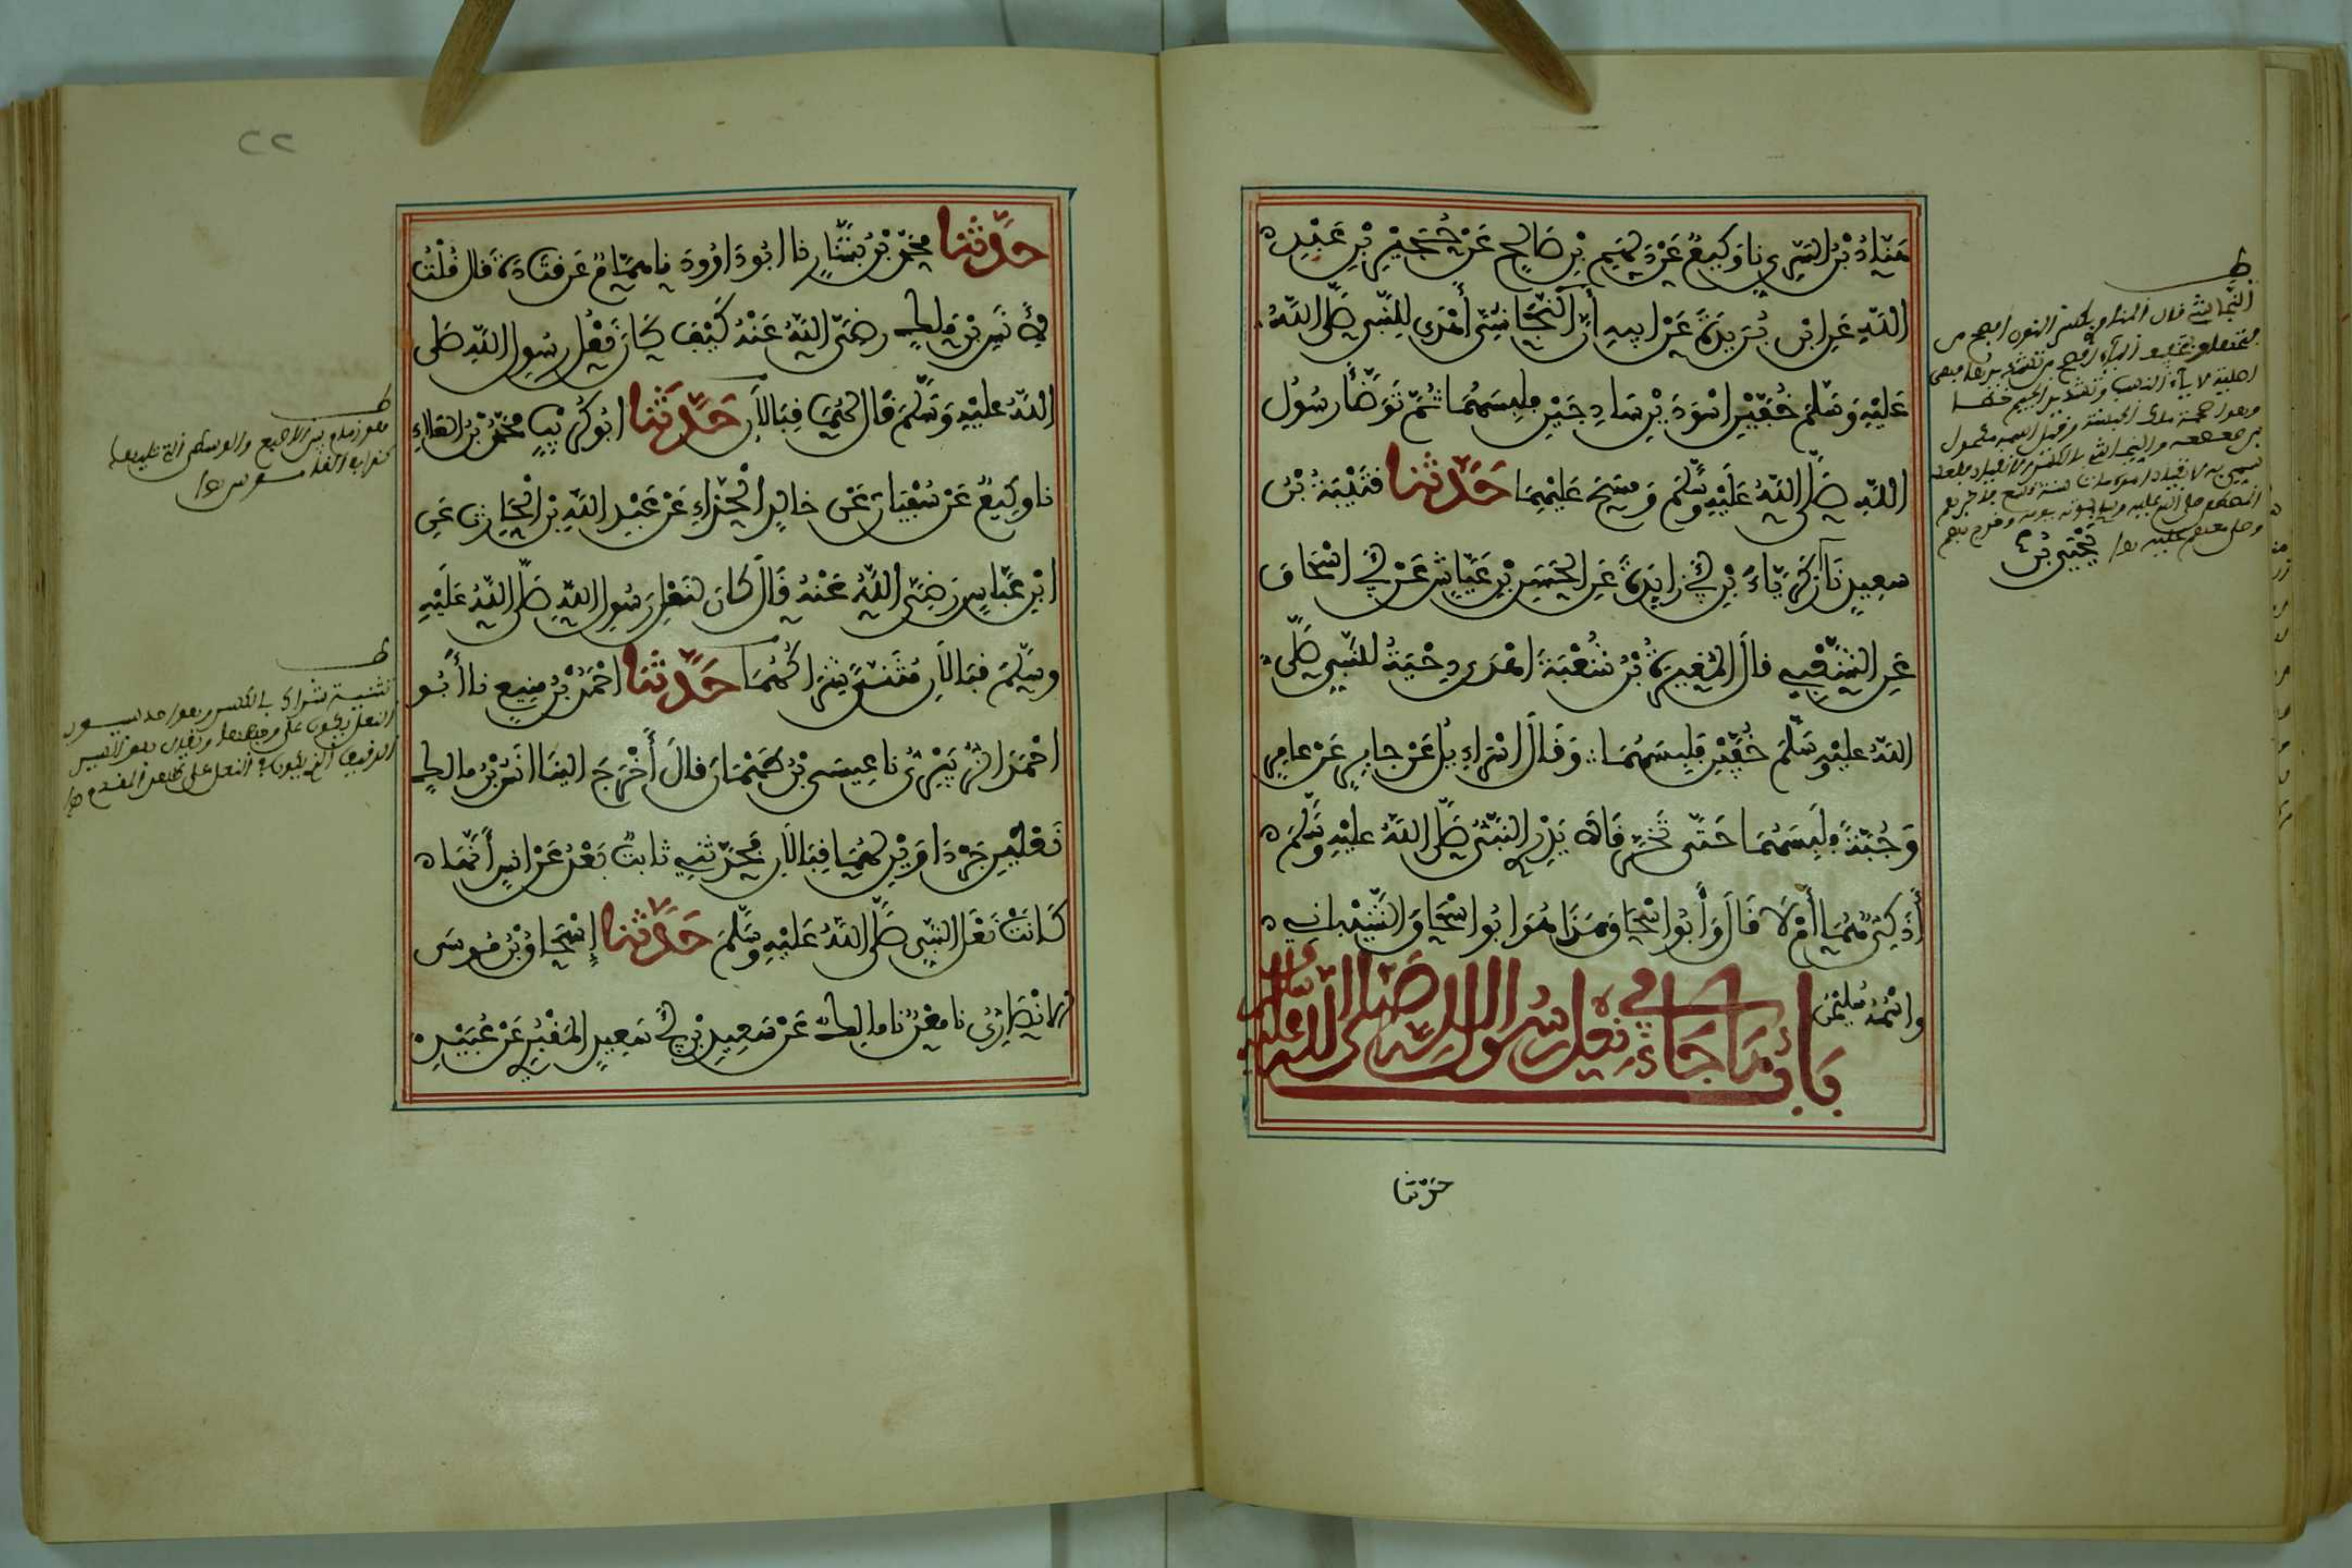 هَنَّادُ بْنُ السَّرِيِّ نا وَكِيعٌ عَنْ دَلْهَمِ بْنِ صَالِحٍ عَنْ حُجَيْرِ بْنِ عَبْدِ
اللَّهِ عَنِ ابْنِ بُرَيْدَةَ عَنْ أَبِيهِ أَنَّ النَّجَاشِيَّ أَهْدَى لِلنَّبِيِّ صَلَّى اللَّهُ
عَلَيْهِ وَسَلَّمَ خُفَّيْنِ أَسْوَدَيْنِ سَاذِجَيْنِ فَلَبِسَهُمَا ثُمَّ تَوَضَّأَ رَسُولُ
اللَّهِ صَلَّى اللَّهُ عَلَيْهِ وَسَلَّمَ وَمَسَحَ عَلَيْهِمَا حَدَّثَنَا قُتَيْبَةُ بْنُ
سَعِيدٍ نَا زَكَرِيَّاءُ بْنُ أَبِي زَايِدَةَ عَنِ الْحَسَنِ بْنِ عَيَّاشٍ عَنْ أَبِي إِسْحَاقَ
عَنِ الشَّعْبِيِّ قَالَ الْمُغِيرَةُ بْنُ شُعْبَةَ أَهْدَى دِحْيَةُ لِلنَّبِيِّ صَلَّى
اللَّهُ عَلَيْهِ وَسَلَّمَ خُفَّيْنِ فَلَبِسَهُمَا وَقَالَ إِسْرَاءِيلُ عَنْ جَابِرٍ عَنْ عَامِرٍ
وَجُبَّةً فَلَبِسَهُمَا حَتَّى تَخَرَّقَا لَا يَدْرِي النَّبِيُّ صَلَّى اللَّهُ عَلَيْهِ وَسَلَّمَ
أَذَكِيٌّ هُمَا أَمْ لَا قَالَ وَأَبُو إِسْحَاقَ هَذَا هُوَ أَبُو إِسْحَاقَ الشَّيْبَانِي
وَاسْمُهُ سُلَيْمَنُ
بَابُ مَا جَاءَ فِي نَعْلِ رَسُولِ اللَّهِ صَلَّى اللَّهُ عَلَيْهِ
حدثنا
٢٢
حَدَّثَنَا مُحَمَّدُ بْنُ بَشَّارٍ نا أَبُو دَاوُودَ نا هَمَّامٌ عَنْ قَتَادَةَ قَالَ قُلْتُ
لِأَنَسِ بْنِ مَالِكٍ رَضِيَ اللَّهُ عَنْهُ كَيْفَ كَانَ نَعْلُ رَسُولِ اللَّهِ صَلَّى
اللَّهُ عَلَيْهِ وَسَلَّمَ قَالَ لَهُمَا قِبَالَانِ حَدَّثَنَا أَبُو كُرَيْبٍ مُحَمَّدُ بْنُ الْعَلَاءِ
نا وَكِيعٌ عَنْ سُفْيَانَ عَنْ خَالِدٍ الْحَذَّاءِ عَنْ عَبْدِ اللَّهِ بْنِ الْحَارِثِ عَنِ
ابْنِ عَبَّاسٍ رَضِيَ اللَّهُ عَنْهُ قَالَ كَانَ لِنَعْلِ رَسُولِ اللَّهِ صَلَّى اللَّهُ عَلَيْهِ
وَسَلَّمَ قِبَالَانِ مُثَنًّى شِرَاكُهُمَا حَدَّثَنَا أَحْمَدُ بْنُ مَنِيعٍ نا أَبُو
أَحْمَدَ الزُّبَيْرِيُّ نا عِيسَى بْنُ طَهْمَانَ قَالَ أَخْرَجَ إِلَيْنَا أَنَسُ بْنُ مَالِكٍ
نَعْلَيْنِ جَرْدَاوَيْنِ لَهُمَا قِبَالَانِ فَحَدَّثَنِي ثَابِتٌ بَعْدُ عَنْ أَنَسٍ أَنَّهُمَا
كَانَتْ نَعْلَيِ النَّبِيِّ صَلَّى اللَّهُ عَلَيْهِ وَسَلَّمَ حَدَّثَنَا إِسْحَاقُ بْنُ مُوسَى
الْأَنْصَارِيُّ نا مَعْنٌ نا مَالِكٌ عَنْ سَعِيدِ بْنِ أَبِي سَعِيدٍ الْمَقْبُرِيِّ عَنْ عُبَيْدِ